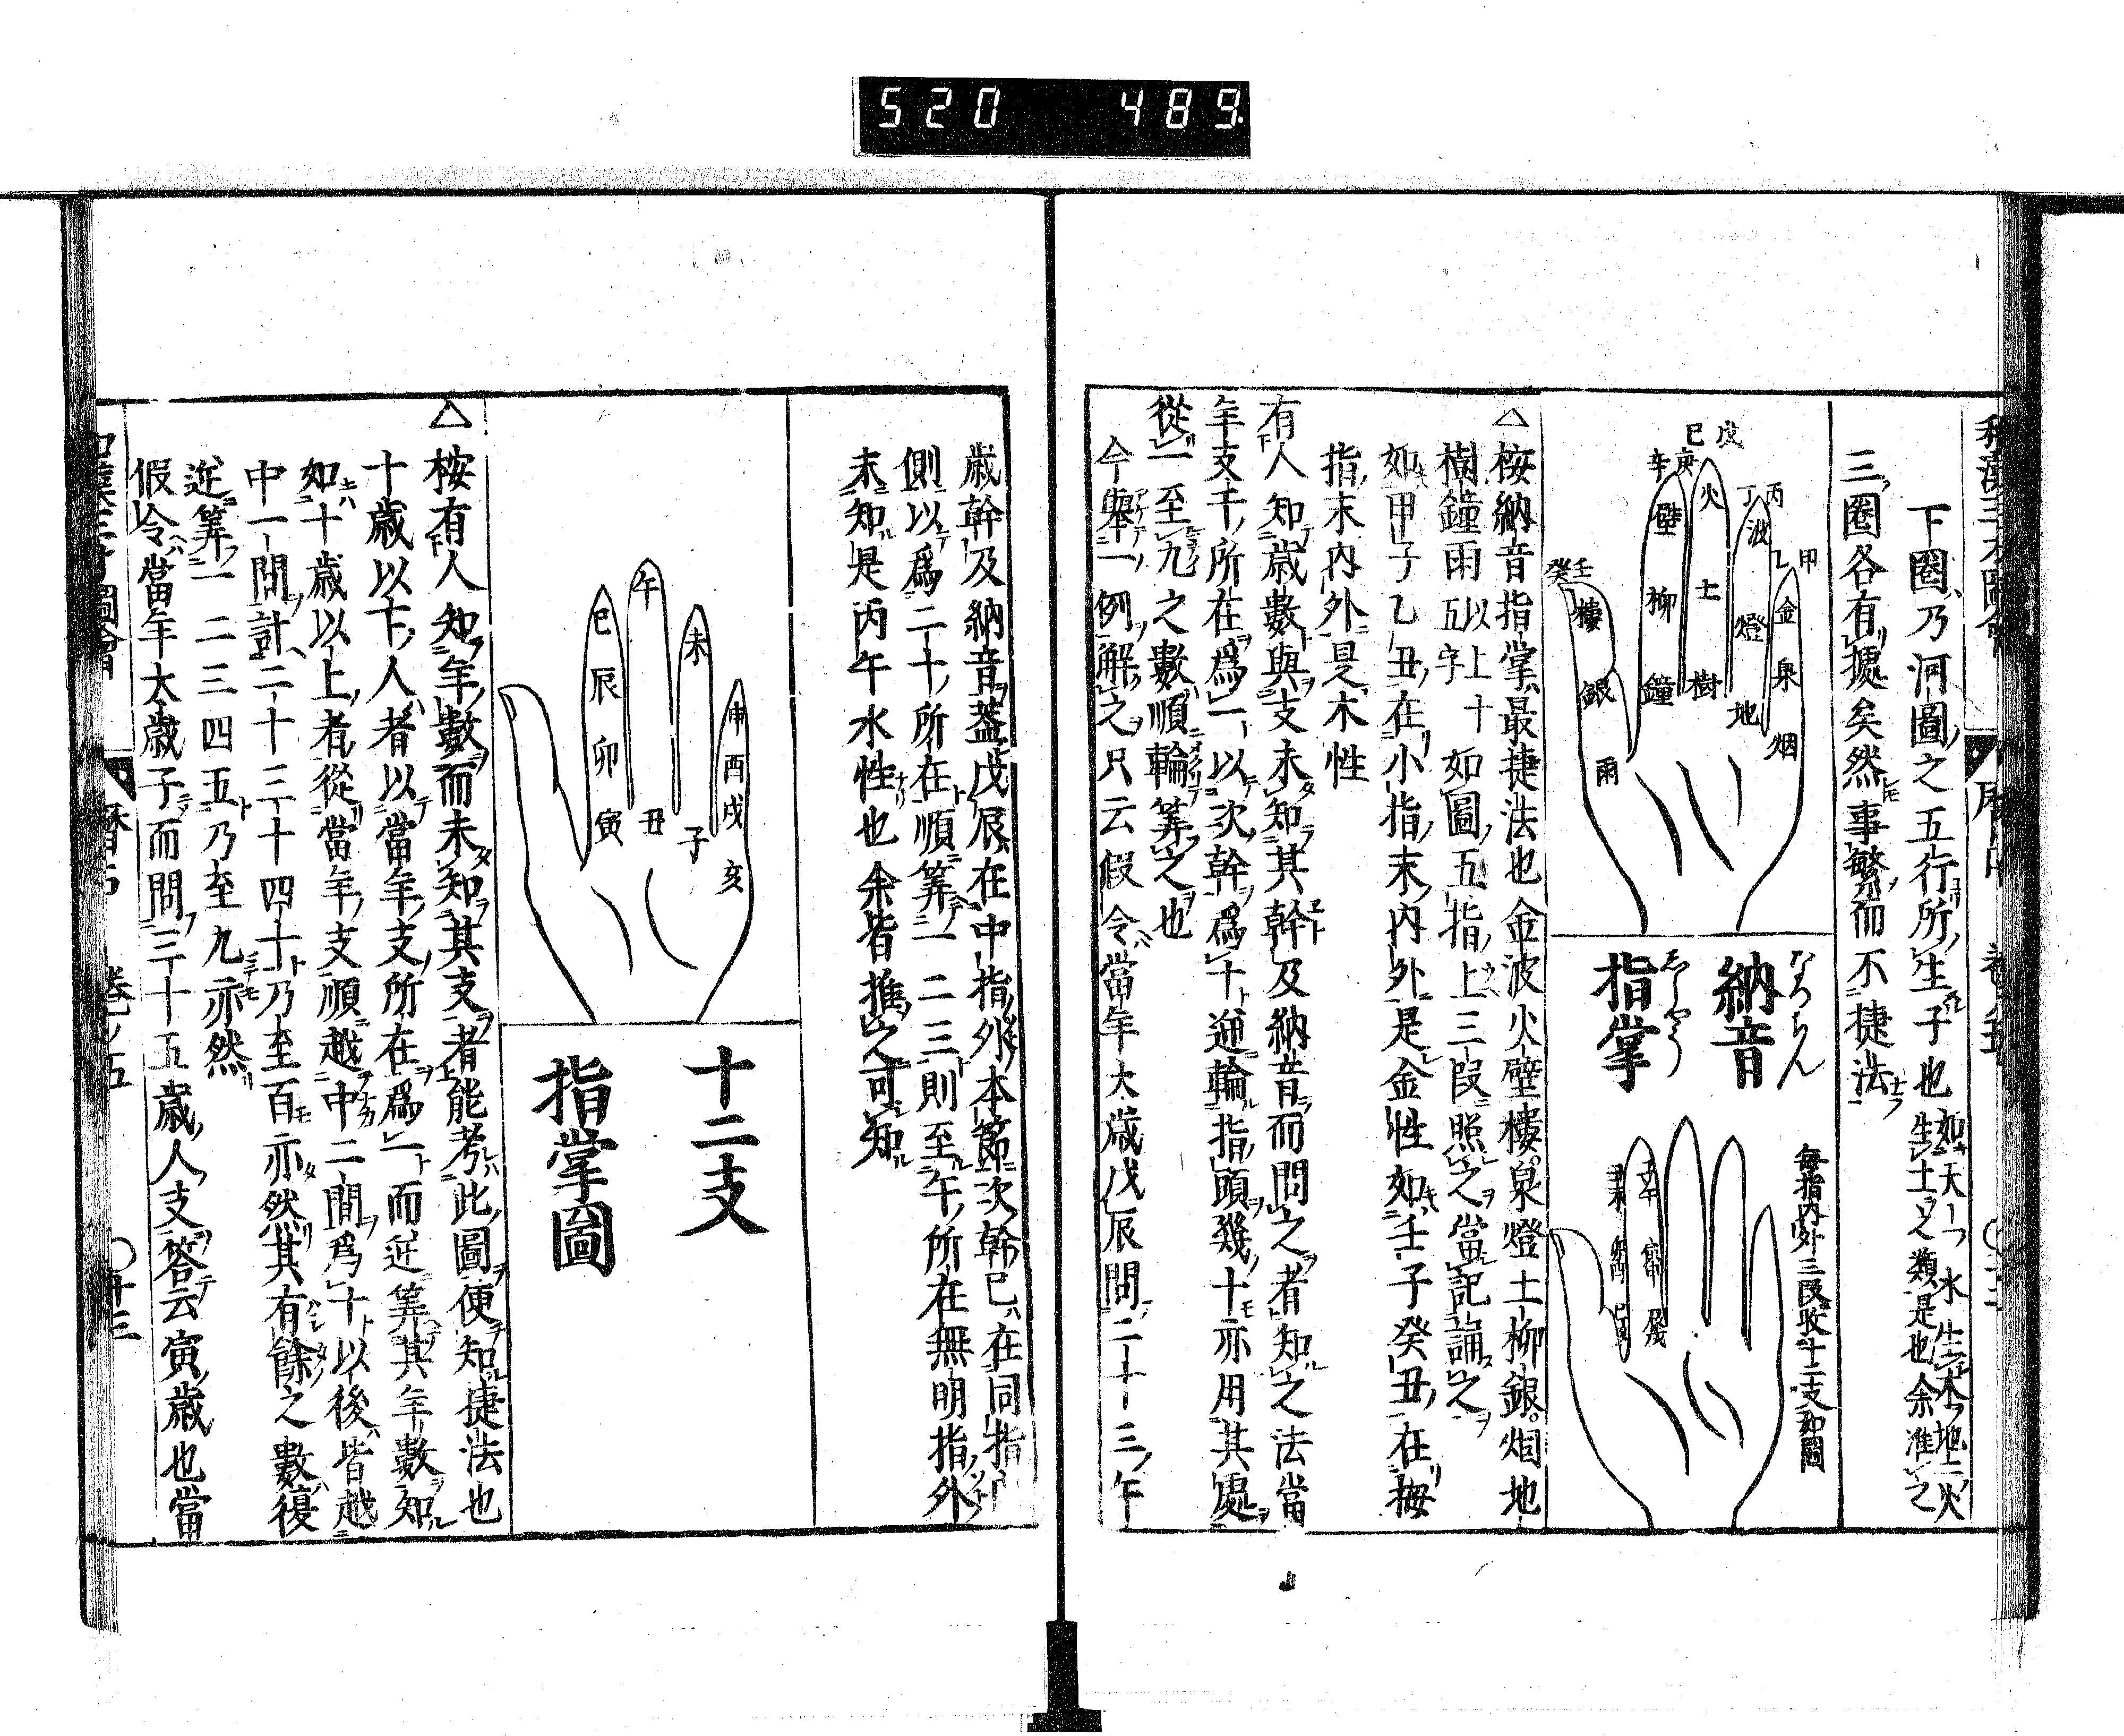 520 489
下圈乃河圖之五行所生子也如天一水生木地二火生土之類是也余准之
三圈各有據矣然事繁而不捷法
戊
巳
庚
辛
丙
丁
甲
乙
壬
癸
金
泉
烟
波
燈
地
火
土
樹
壁
柳
鐘
樓
銀
雨
納音
なつちん
指掌
しやう
每指內外三段收十二支如圖
△按納音指掌最捷法也金波火壁樓泉燈土柳銀烟地
樹鐘雨以上十五字如圖五指上三段照之當記誦之
如甲子乙丑在小指末內外是金性如壬子癸丑在拇
指末內外是木性
有人知歲數與支未知其幹及納音而問之者知之法當
年支干所在為一以次幹為十逆輪指頭幾十亦用其處
從一至九之數順輪筭之也
今舉一例解之只云假令當年太歲戊辰問二十三午
歲幹及納音蓋戊辰在中指外本節次幹巳在同指
側以為二十所在順筭一二三則至午所在無明指外
末知是丙午水性也余皆推之可知
午
巳
辰
卯
寅
丑
子
未
申
酉
戌
亥
十二支
指掌圖
△按有人知年數而未知其支者能考此圖便知捷法也
十歲以下人者以當年支所在為一而逆筭其年數知
如十歲以上者從當年支順越中二間為十以後皆越
中一間計二十三十四十乃至百亦然其有餘之數復
逆筭一二三四五乃至九亦然
假令當年太歲子而問三十五歲人支答云寅歲也當